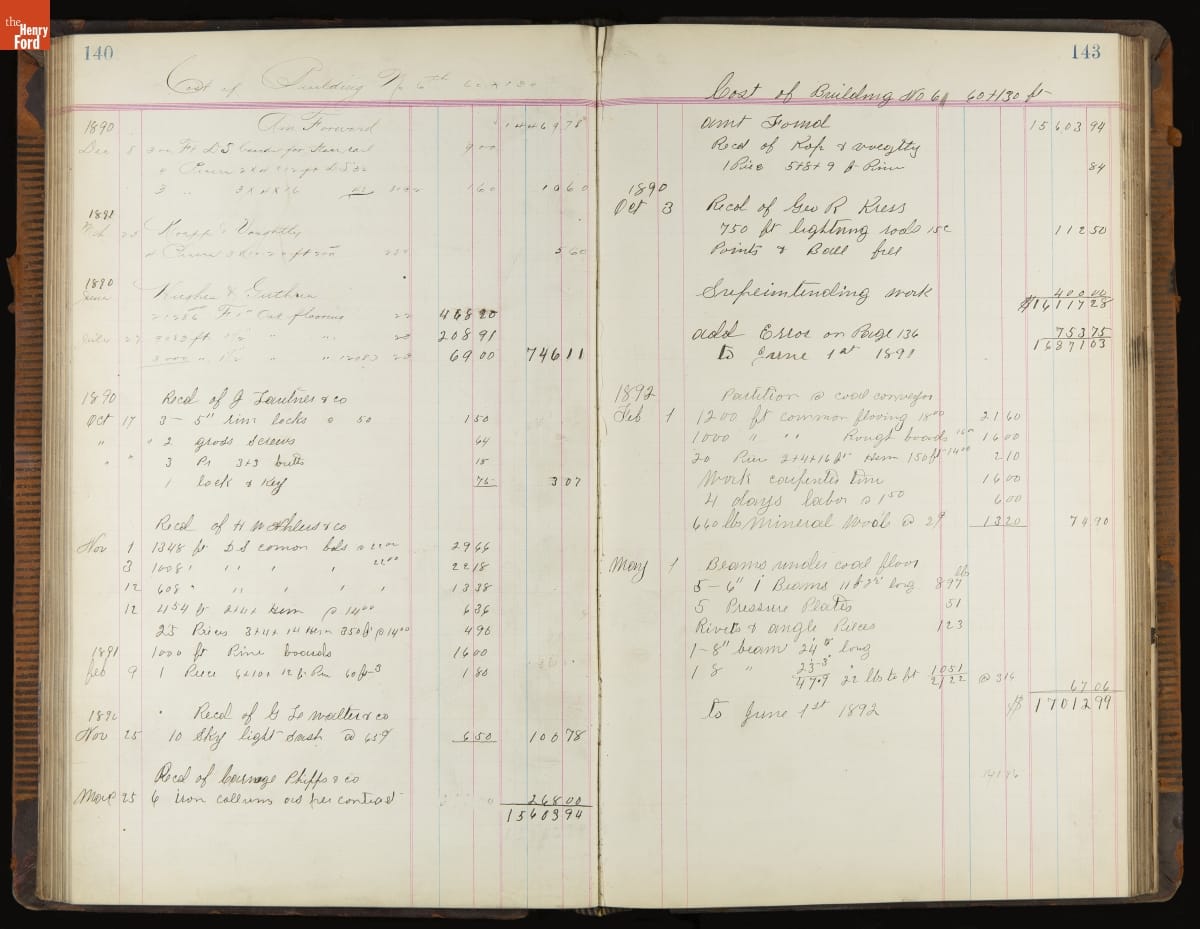 the
Henry
Ford
140
Cost of Building No 6 60 x 130
1890 Am Forward 14469 78
Dec 8 300 Ft D S for 9 00
3 " 3 x 4 x 16 1 60 10 60
1891
23 Knapp & Voughtly
5 60
1890
June & Guthrie
Oak flooring 22 468 20
27 3083 ft 1 1/2 " " 208 91
3000 " 1 1/2 " " 69 00 746 11
1890 Recd of J Lautner & co
Oct 17 3 - 5" rim locks @ 50 1 50
" " 2 gross screws 64
" " 3 Pr 3+3 butts 18
1 lock & Key 75 3 07
Recd of H W Ahlers & co
Nov 1 1348 ft D S comon bds @ 22 00 29 66
3 1008 " " " " " 22 00 22 18
12 608 " " " " " 13 38
12 454 ft 2+4+ Hem @ 14 00 6 36
25 Pieces 3+4+14 Hem 350 ft @ 14 00 4 90
1891 1000 ft Pine boards 16 00
feb 9 1 Piece 6+10+12 ft Pin 60 ft 1 80
1890 Recd of G Le Walter & co
Nov 25 10 Sky light Sash @ 65¢ 6 50 100 78
Recd of Carnage Phipps & co
25 6 iron collums as per contract 268 00
15603 94
143
Cost of Building No 6 60+130 ft
amt Forwd 15603 94
Recd of Kop & voegtly
1 Piece 5+8+9 ft Pine 84
1890
Oct 3 Recd of Geo R Kress
750 ft lightning rods 15c 112 50
Points & Ball free
Srepeimtending work 400 00
$16117 28
add Error on Page 136 753 75
to June 1st 1891 16871 03
1892 Partition @ coal conveyor
Feb 1 1200 ft common flooring 18 00 21 60
1000 " " Rough boards 16 00 16 00
20 Piec 2+4+16 ft Hem 150 ft 14 00 2 10
Work carpenter time 16 00
4 days labor @ 1 50 6 00
660 lbs Mineral Wool @ 2¢ 13 20 74 90
May 1 Beams under coal floor
5 - 6" I Beams 11 ft 2" long 897 lbs
5 Pressure Plates 51
Rivets & angle Pieces 123
1 - 8" beam 24' 6" long
1 8 " 23-3" 22 lbs to ft 1051
47.9 2122 @ 316 67 06
to June 1st 1892 $ 17012 99